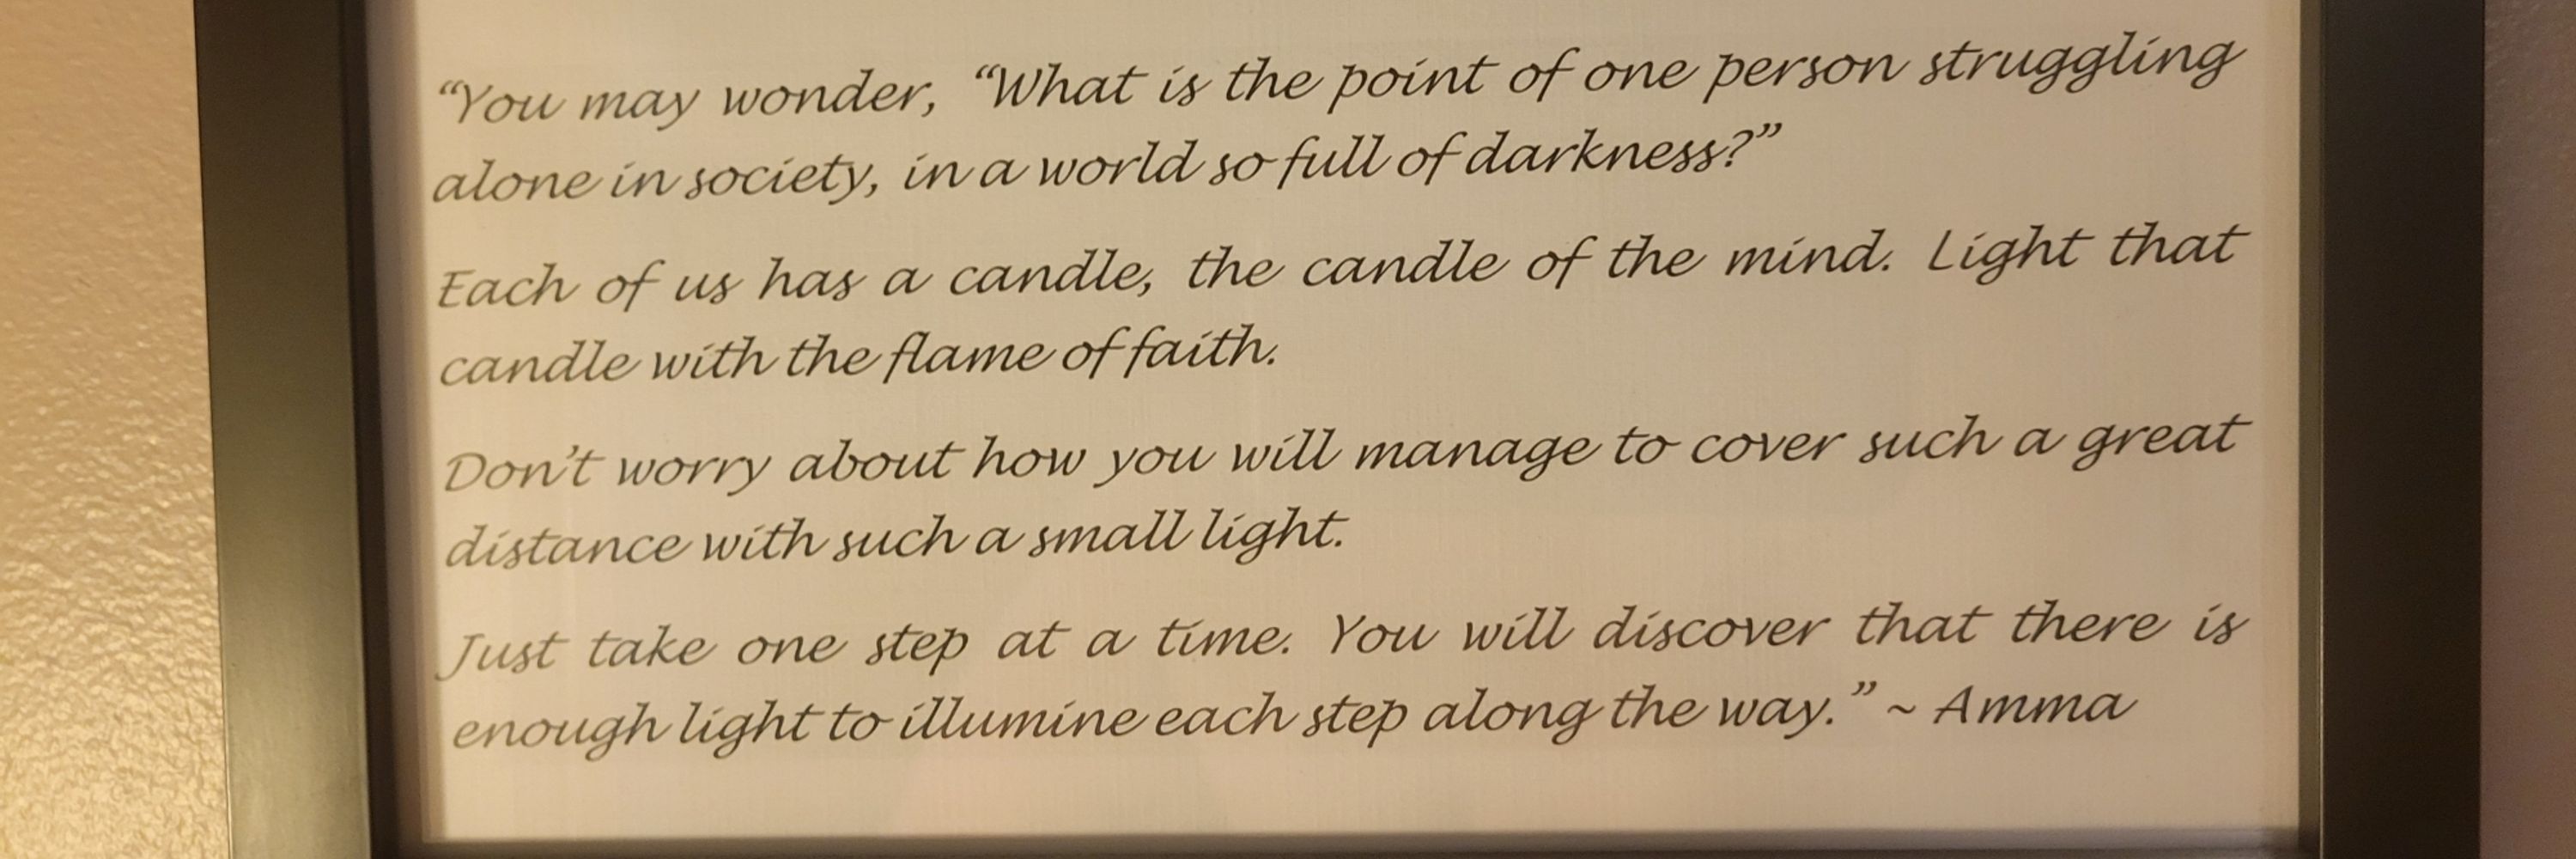 “You may wonder, “What is the point of one person struggling
alone in society, in a world so full of darkness?”
Each of us has a candle, the candle of the mind. Light that
candle with the flame of faith.
Don’t worry about how you will manage to cover such a great
distance with such a small light.
Just take one step at a time. You will discover that there is
enough light to illumine each step along the way.” ~ Amma